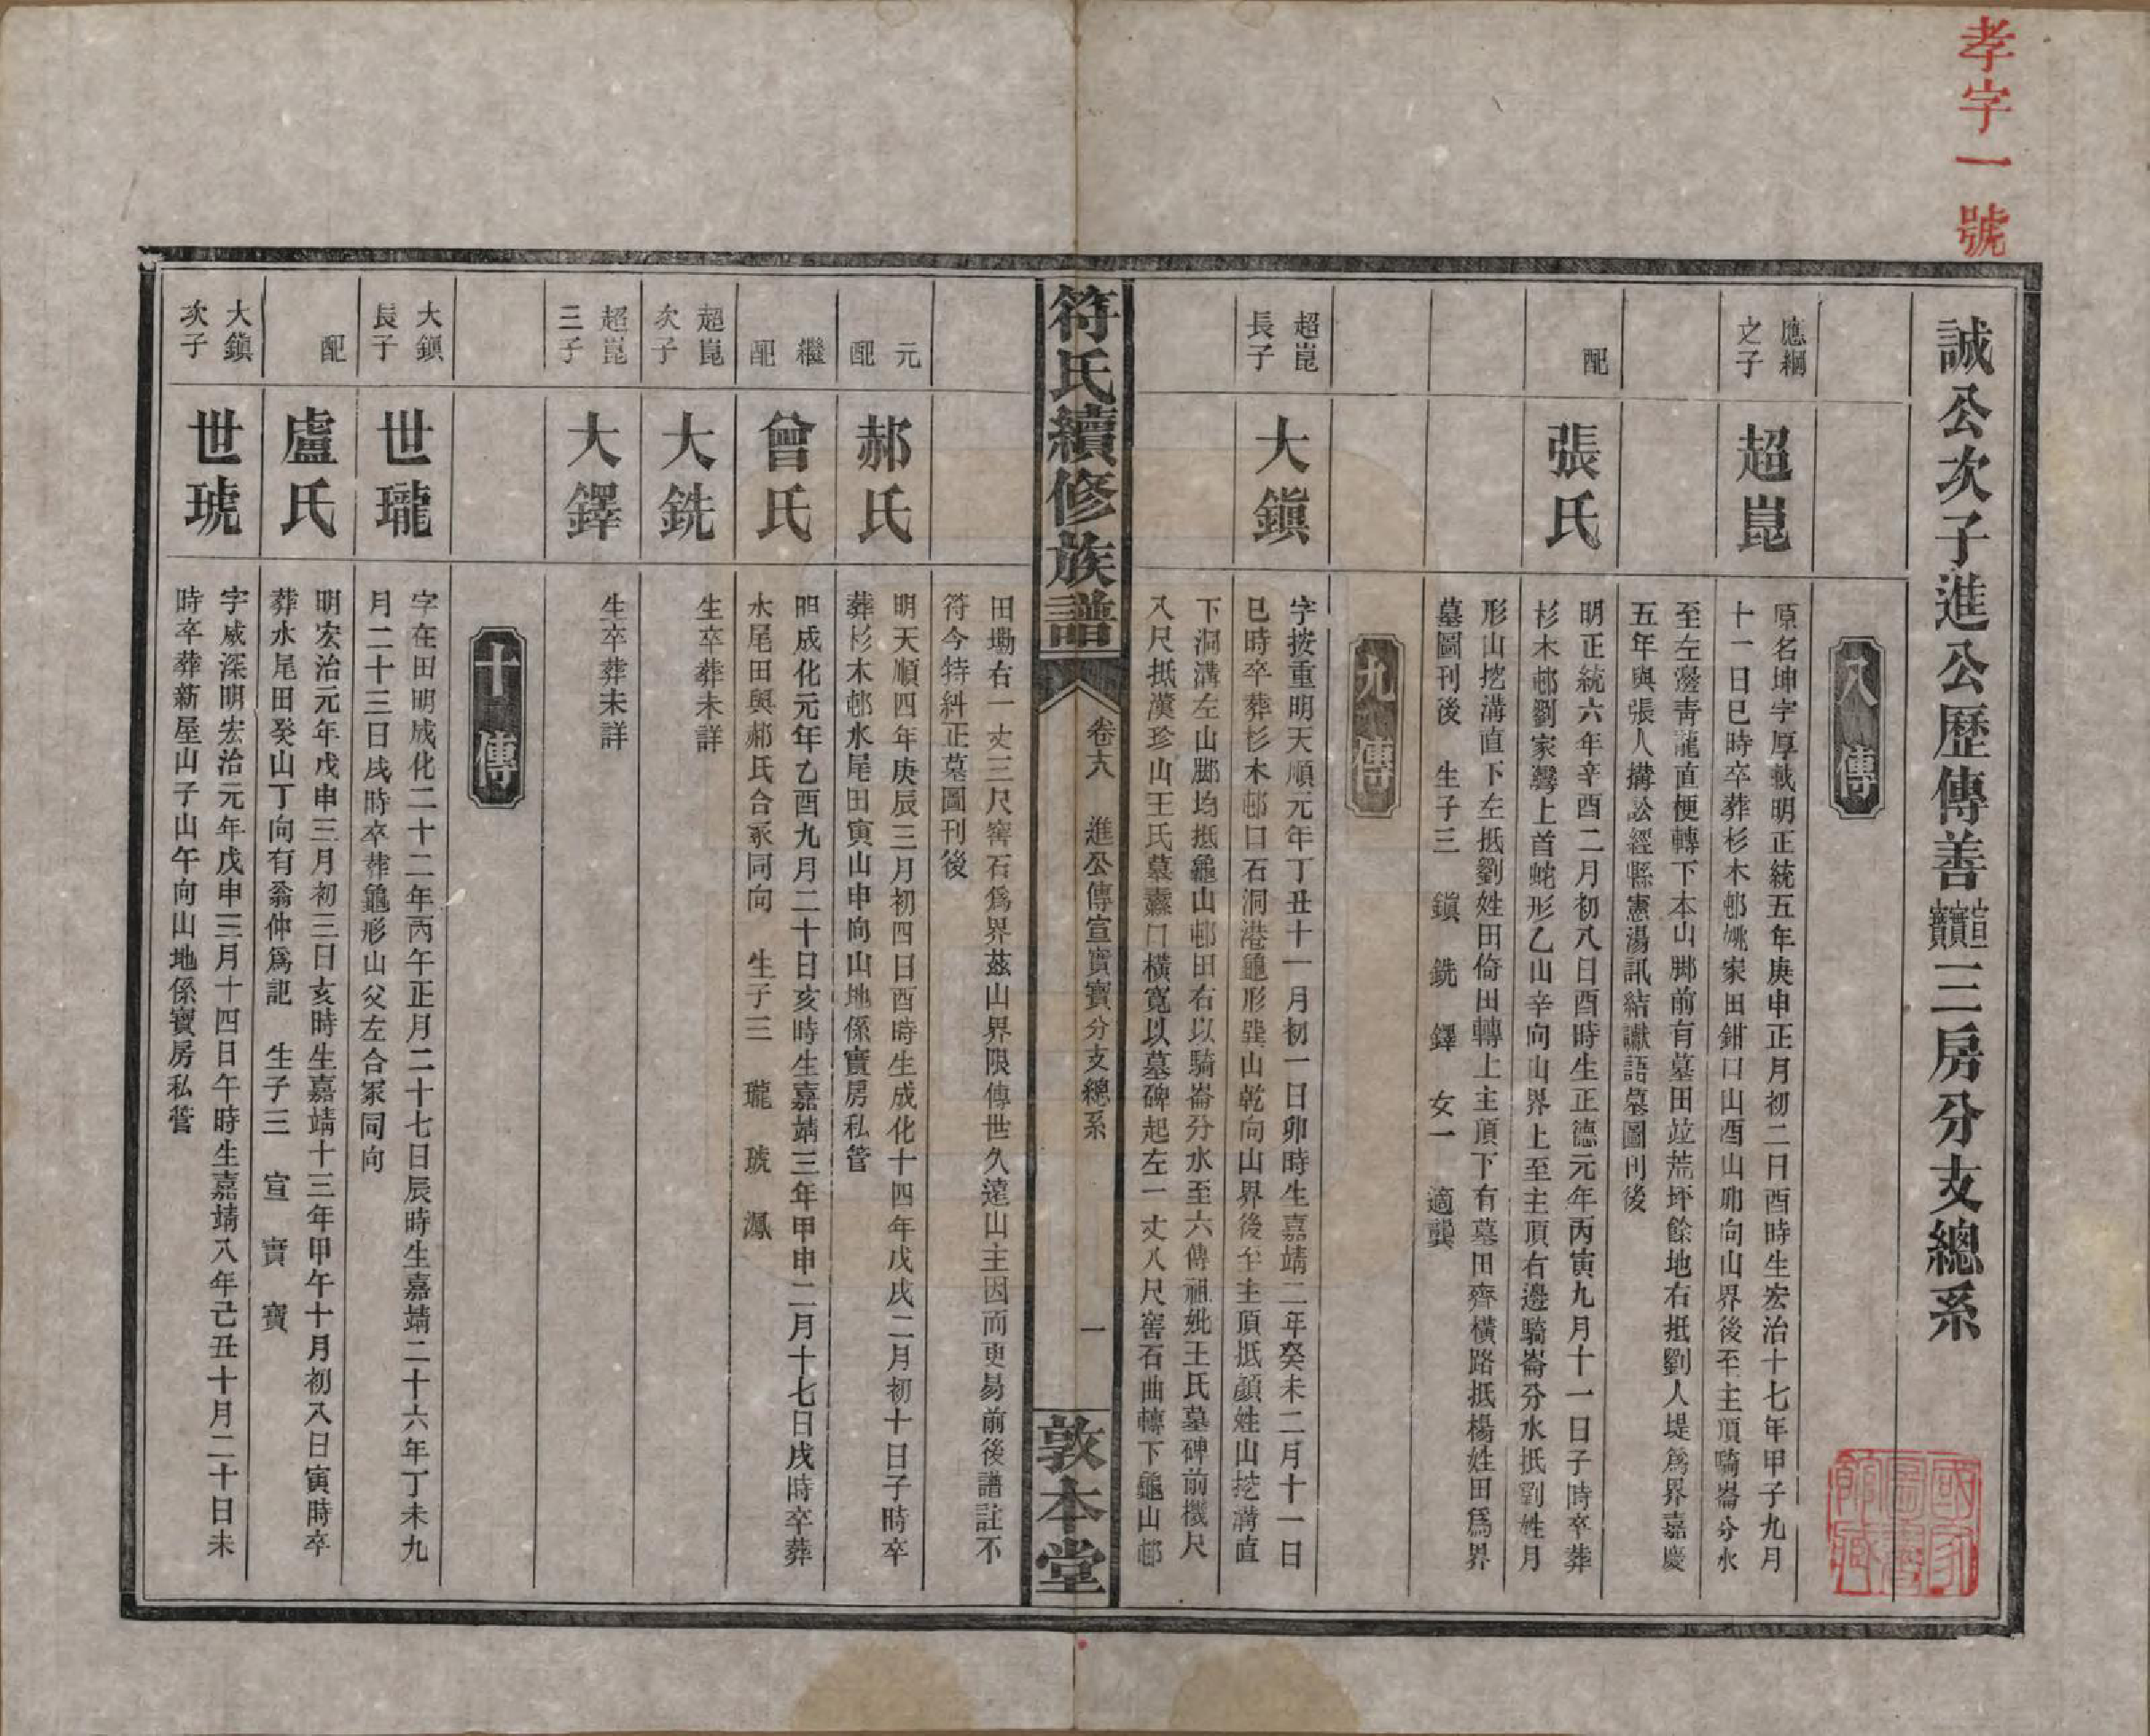 孝字一號
誠公次子進公歷傳善宣實寶三房分支總系
八傳
應綱之子
超崑
原名坤字厚載明正統五年庚申正月初二日酉時生宏治十七年甲子九月
十一日巳時卒葬杉木邨姚家田鉗口山酉山卯向山界後至主頂騎崙分水
至左邊青龍直便轉下本山腳前有墓田竝荒坪餘地右抵劉人堤為界嘉慶
五年與張人搆訟經縣憲湯訊結讞語墓圖刊後
配
張氏
明正統六年辛酉二月初八日酉時生正德元年丙寅九月十一日子時卒葬
杉木邨劉家灣上首蛇形乙山辛向山界上至主頂右邊騎崙分水抵劉姓月
形山挖溝直下左抵劉姓田倚田轉上主頂下有墓田齊橫路抵楊姓田為界
墓圖刊後 生子三 鎮 銑 鐸 女一 適龔
九傳
超崑長子
大鎮
字按重明天順元年丁丑十一月初一日卯時生嘉靖二年癸未二月十一日
巳時卒葬杉木邨口石洞港龜形巽山乾向山界後至主頂抵顏姓山挖溝直
下洞溝左山腳均抵龜山邨田右以騎崙分水至六傳祖妣王氏墓碑前機尺
八尺抵漢珍山王氏墓橐口橫寬以墓碑起左一丈八尺窖石曲轉下龜山邨
符氏續修族譜
卷六 進公傳宣實寶分支總系
一
敦本堂
田塝右一丈三尺窖石為界茲山界限傳世久遠山主因而更易前後譜註不
符今特糾正墓圖刊後
元配
郝氏
明天順四年庚辰三月初四日酉時生成化十四年戊戌二月初十日子時卒
葬杉木邨水尾田寅山申向山地係實房私管
繼配
曾氏
明成化元年乙酉九月二十日亥時生嘉靖三年甲申二月十七日戌時卒葬
水尾田與郝氏合冢同向 生子三 瓏 琥 鳳
超崑次子
大銑
生卒葬未詳
超崑三子
大鐸
生卒葬未詳
十傳
大鎮長子
世瓏
字在田明成化二十二年丙午正月二十七日辰時生嘉靖二十六年丁未九
月二十三日戌時卒葬龜形山父左合冢同向
配
盧氏
明宏治元年戊申三月初三日亥時生嘉靖十三年甲午十月初八日寅時卒
葬水尾田癸山丁向有翁仲為記 生子三 宣 實 寶
大鎮次子
世琥
字威深明宏治元年戊申三月十四日午時生嘉靖八年己丑十月二十日未
時卒葬新屋山子山午向山地係寶房私管
國家圖書館藏